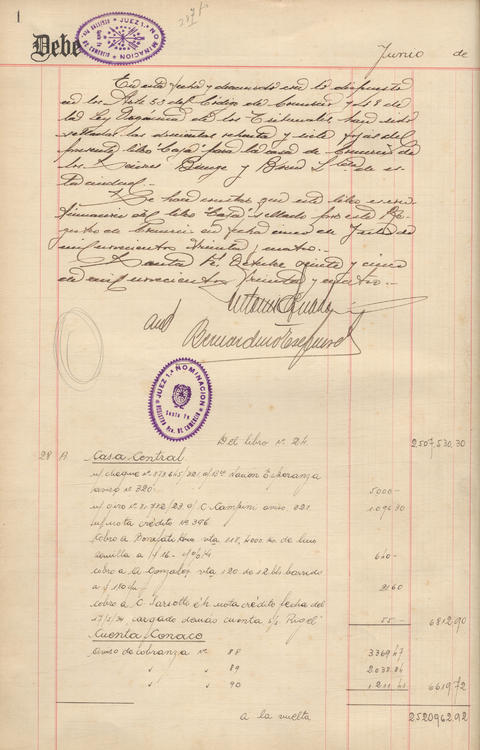 1
287 f.
Debe
JUEZ 1.ª NOMINACION
REGISTRO PCO. DE COMERCIO
Junio de
En esta fecha y de acuerdo con lo dispuesto
en los Arts 53 del Código de Comercio y 48 de
la Ley Orgánica de los Tribunales han sido
selladas las doscientas ochenta y siete fojas del
presente libro "Caja" para la casa de Comercio de
los Señores Bunge y Born Ltda. de es-
ta ciudad.-
Se hace constar que este libro es con-
tinuación del libro "Caja" sellado por este Re-
gistro de Comercio en fecha cinco de Julio de
mil novecientos treinta y cuatro.-
Santa Fe, Octubre veinte y cinco
de mil novecientos treinta y cuatro.-
Ante
Bernardino
JUEZ 1.ª NOMINACION
Santa Fe
REGISTRO PCO. DE COMERCIO
Del libro Nº 24 2507,530.30
28 A Casa Central
n/ cheque Nº 373645/321 o/ Bco Nación Esperanza
aviso Nº 320 5000-
n/ giro Nº 81782/23 o/ C. Campini aviso 321 1096 30
n/ nota crédito Nº 396
cobro a Bonifatti Hno vta 118,4000 ks de lino
640-
cobro a A. Gonzalez vta 120 de 12 kls barrido
21 60
cobro a C. Sarsotti é h. nota crédito fecha del
17/5/34 cargado demás cuenta 55- 6812 90
Cuenta Conaco
Aviso de cobranza Nº 88 3369 47
" " 89 2038 84
" " 90 1211 41 6619 72
a la vuelta 2520962 92